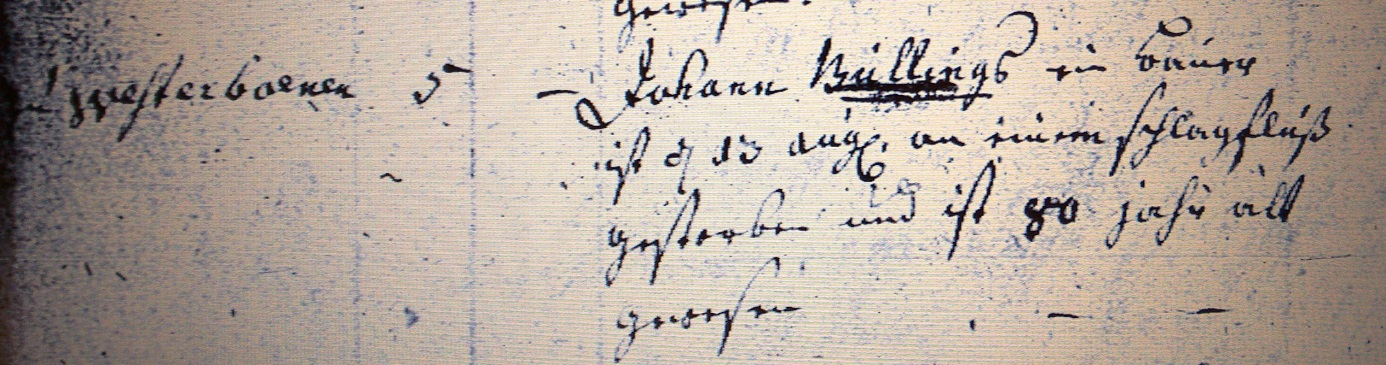 gewesen.
Westerboenen 5 — Johann Büllings ein bauer
ist d 13 aug. an einem schlagfluß
gestorben und ist 80 jahr alt
gewesen . — —